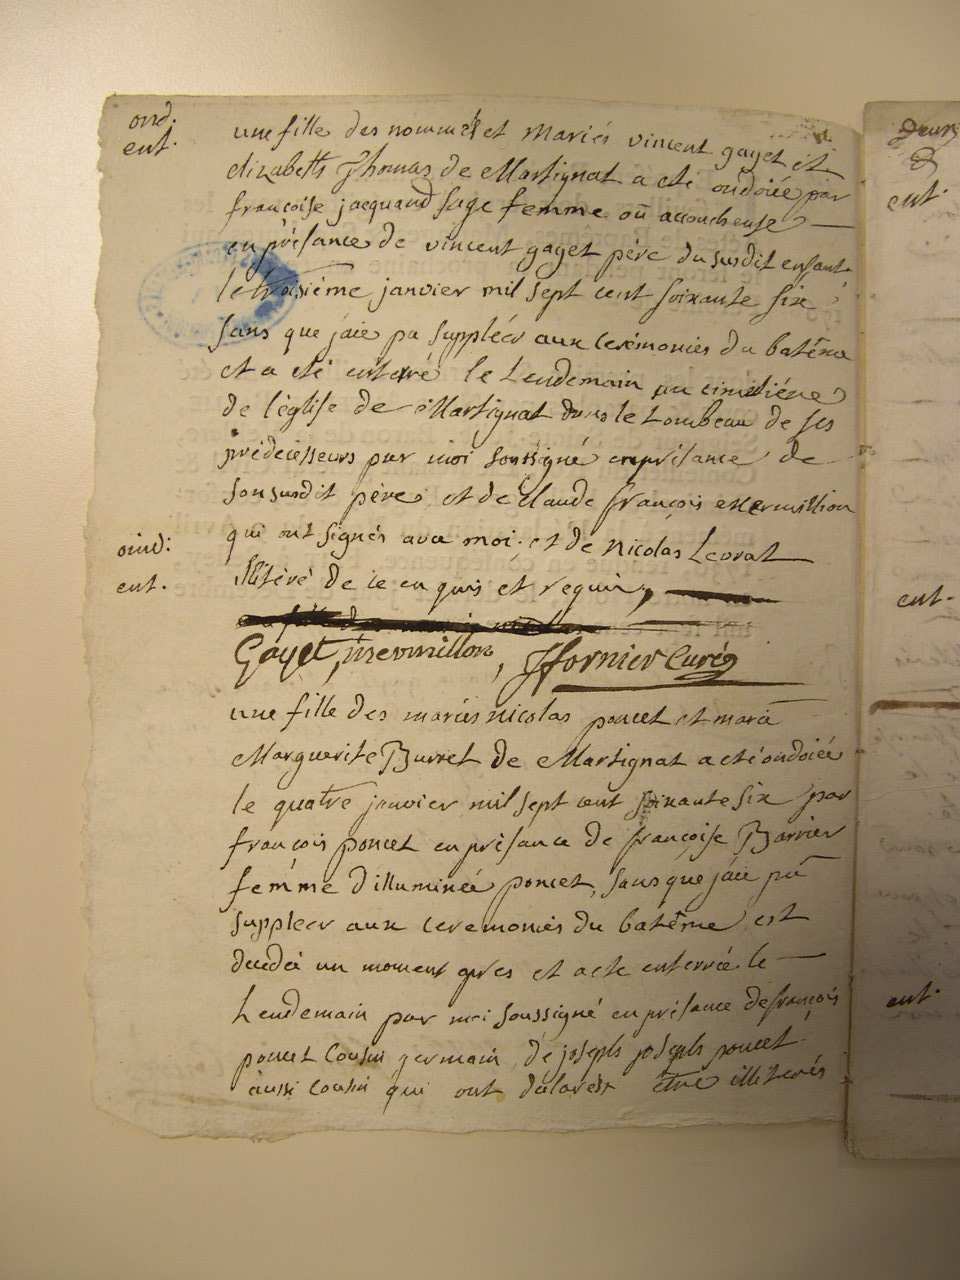 ond.
ent.
une fille des nommés et mariés vincent gayet et
elizabeth Thomas de Martignat a eté ondoiée par
françoise jacquand sage femme où accoucheuse
en présance de vincent gayet père du susdit enfant
le troisième janvier mil sept cent soixante six
sans que jaie pu suppléer aux ceremonies du batême
et a eté enterré le Lendemain au cimetiére
de l'église de Martignat dans le tombeau de ses
prédécesseurs par moi soussigné en présance de
son susdit père et de Claude françois mermillion
qui ont signés avec moi. et de nicolas Levrat
illitéré de ce en quis et requis,
Gayet, mermillion, fornier Curé
oind:
ent.
une fille des mariés nicolas poncet et marie
Marguerite Burret de Martignat a eté ondoiée
le quatre janvier mil sept cent soixante six par
françois poncet en présance de françoise Barrier
femme d'illuminée poncet, sans que jaie pu
suppleer aux ceremonies du batême est
decedée un moment apres et a eté enterrée le
Lendemain par moi soussigné en présance de françois
poncet Cousin germain, de joseph joseph poncet
aussi Cousin qui ont être illiterés
ent.
ent.
ent.